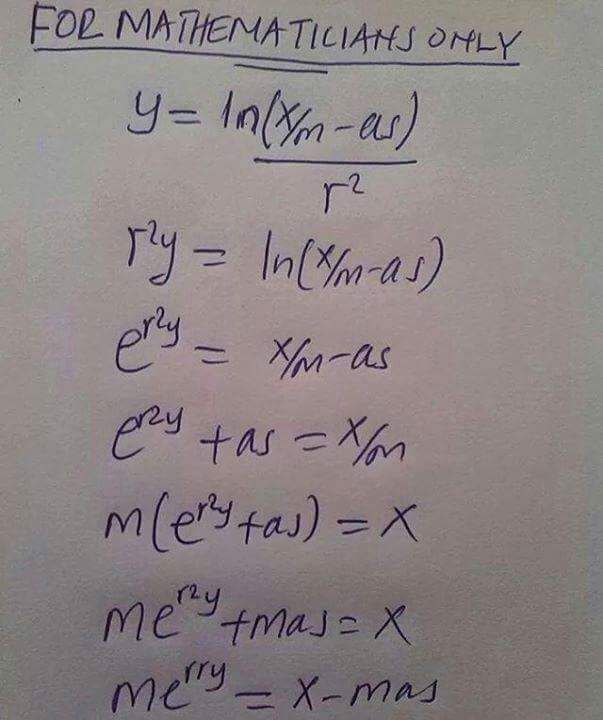 FOR MATHEMATICIANS ONLY
y = ln(x/m - as)
r²
r²y = ln(x/m - as)
e^{r²y} = x/m - as
e^{r²y} + as = x/m
m(e^{r²y} + as) = x
me^{r²y} + mas = x
me^{rry} = x - mas